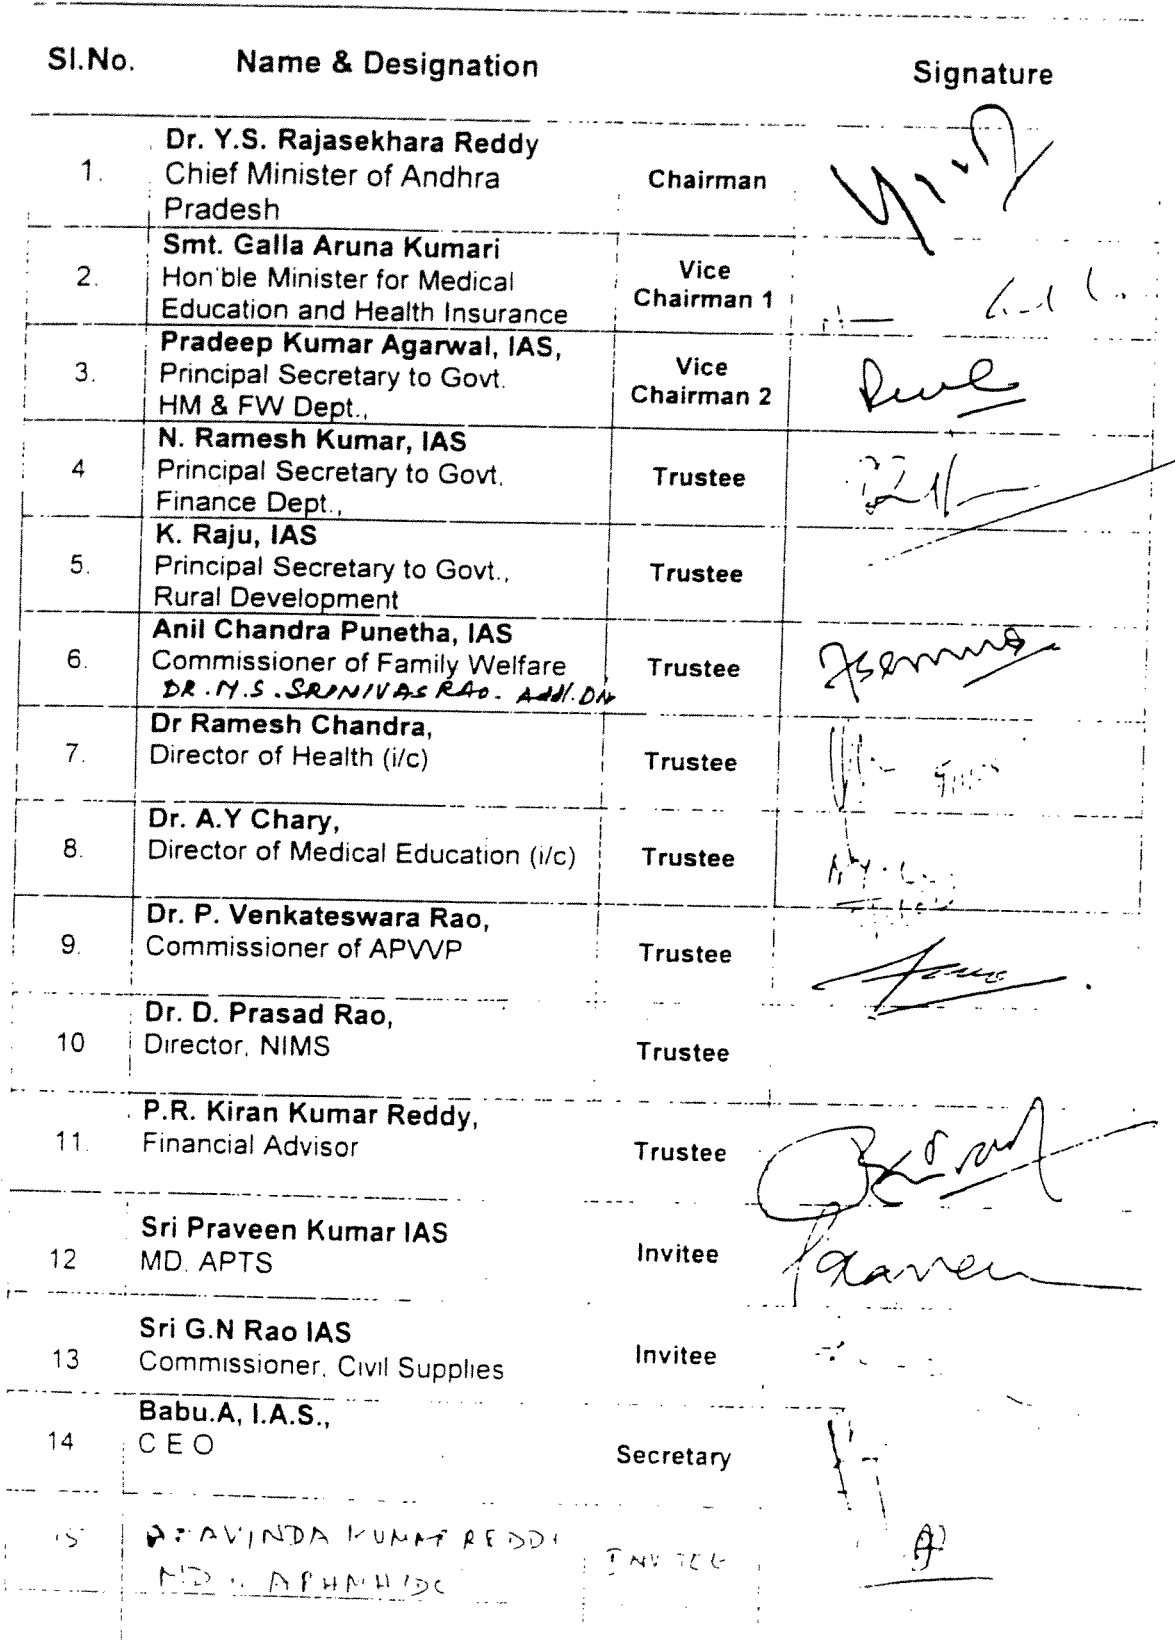 Sl.No. Name & Designation Signature
1. Dr. Y.S. Rajasekhara Reddy
Chief Minister of Andhra
Pradesh
Chairman
2. Smt. Galla Aruna Kumari
Hon'ble Minister for Medical
Education and Health Insurance
Vice
Chairman 1
3. Pradeep Kumar Agarwal, IAS,
Principal Secretary to Govt.
HM & FW Dept.,
Vice
Chairman 2
4 N. Ramesh Kumar, IAS
Principal Secretary to Govt.
Finance Dept.,
Trustee
5. K. Raju, IAS
Principal Secretary to Govt.,
Rural Development
Trustee
6. Anil Chandra Punetha, IAS
Commissioner of Family Welfare
DR. M.S. SRINIVAS RAO. Addl. DIr
Trustee
7. Dr Ramesh Chandra,
Director of Health (i/c)
Trustee
8. Dr. A.Y Chary,
Director of Medical Education (i/c)
Trustee
9. Dr. P. Venkateswara Rao,
Commissioner of APVVP
Trustee
10 Dr. D. Prasad Rao,
Director, NIMS
Trustee
11. P.R. Kiran Kumar Reddy,
Financial Advisor
Trustee
12 Sri Praveen Kumar IAS
MD. APTS
Invitee
Praveen
13 Sri G.N Rao IAS
Commissioner, Civil Supplies
Invitee
14 Babu.A, I.A.S.,
C E O
Secretary
15 ARAVINDA KUMAR REDDY
MD. APHMHIDC
INVITEE